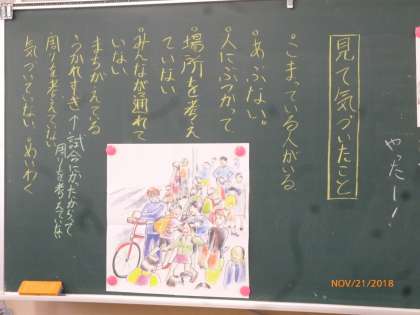 やったー!
見て気づいたこと
。こまっている人がいる
。あぶない。
。人にぶつかって
。場所を考え
ていない
。みんなが通れて
いない
まちがえてる
うかれすぎ↑試合にかったからって
周りを考えていない
周りを考えていない
気づいていない。めいわく
NOV/21/2018